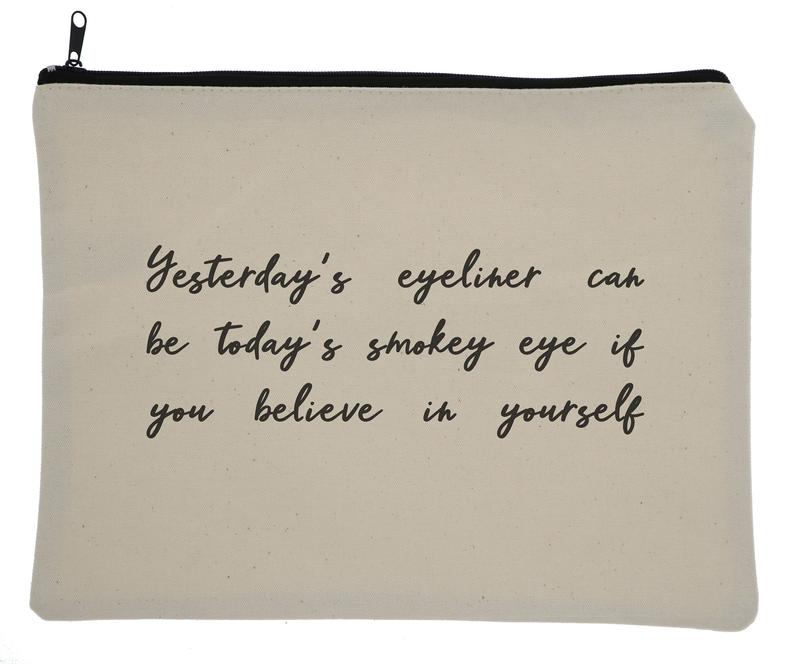 Yesterday's eyeliner can
be today's smokey eye if
you believe in yourself